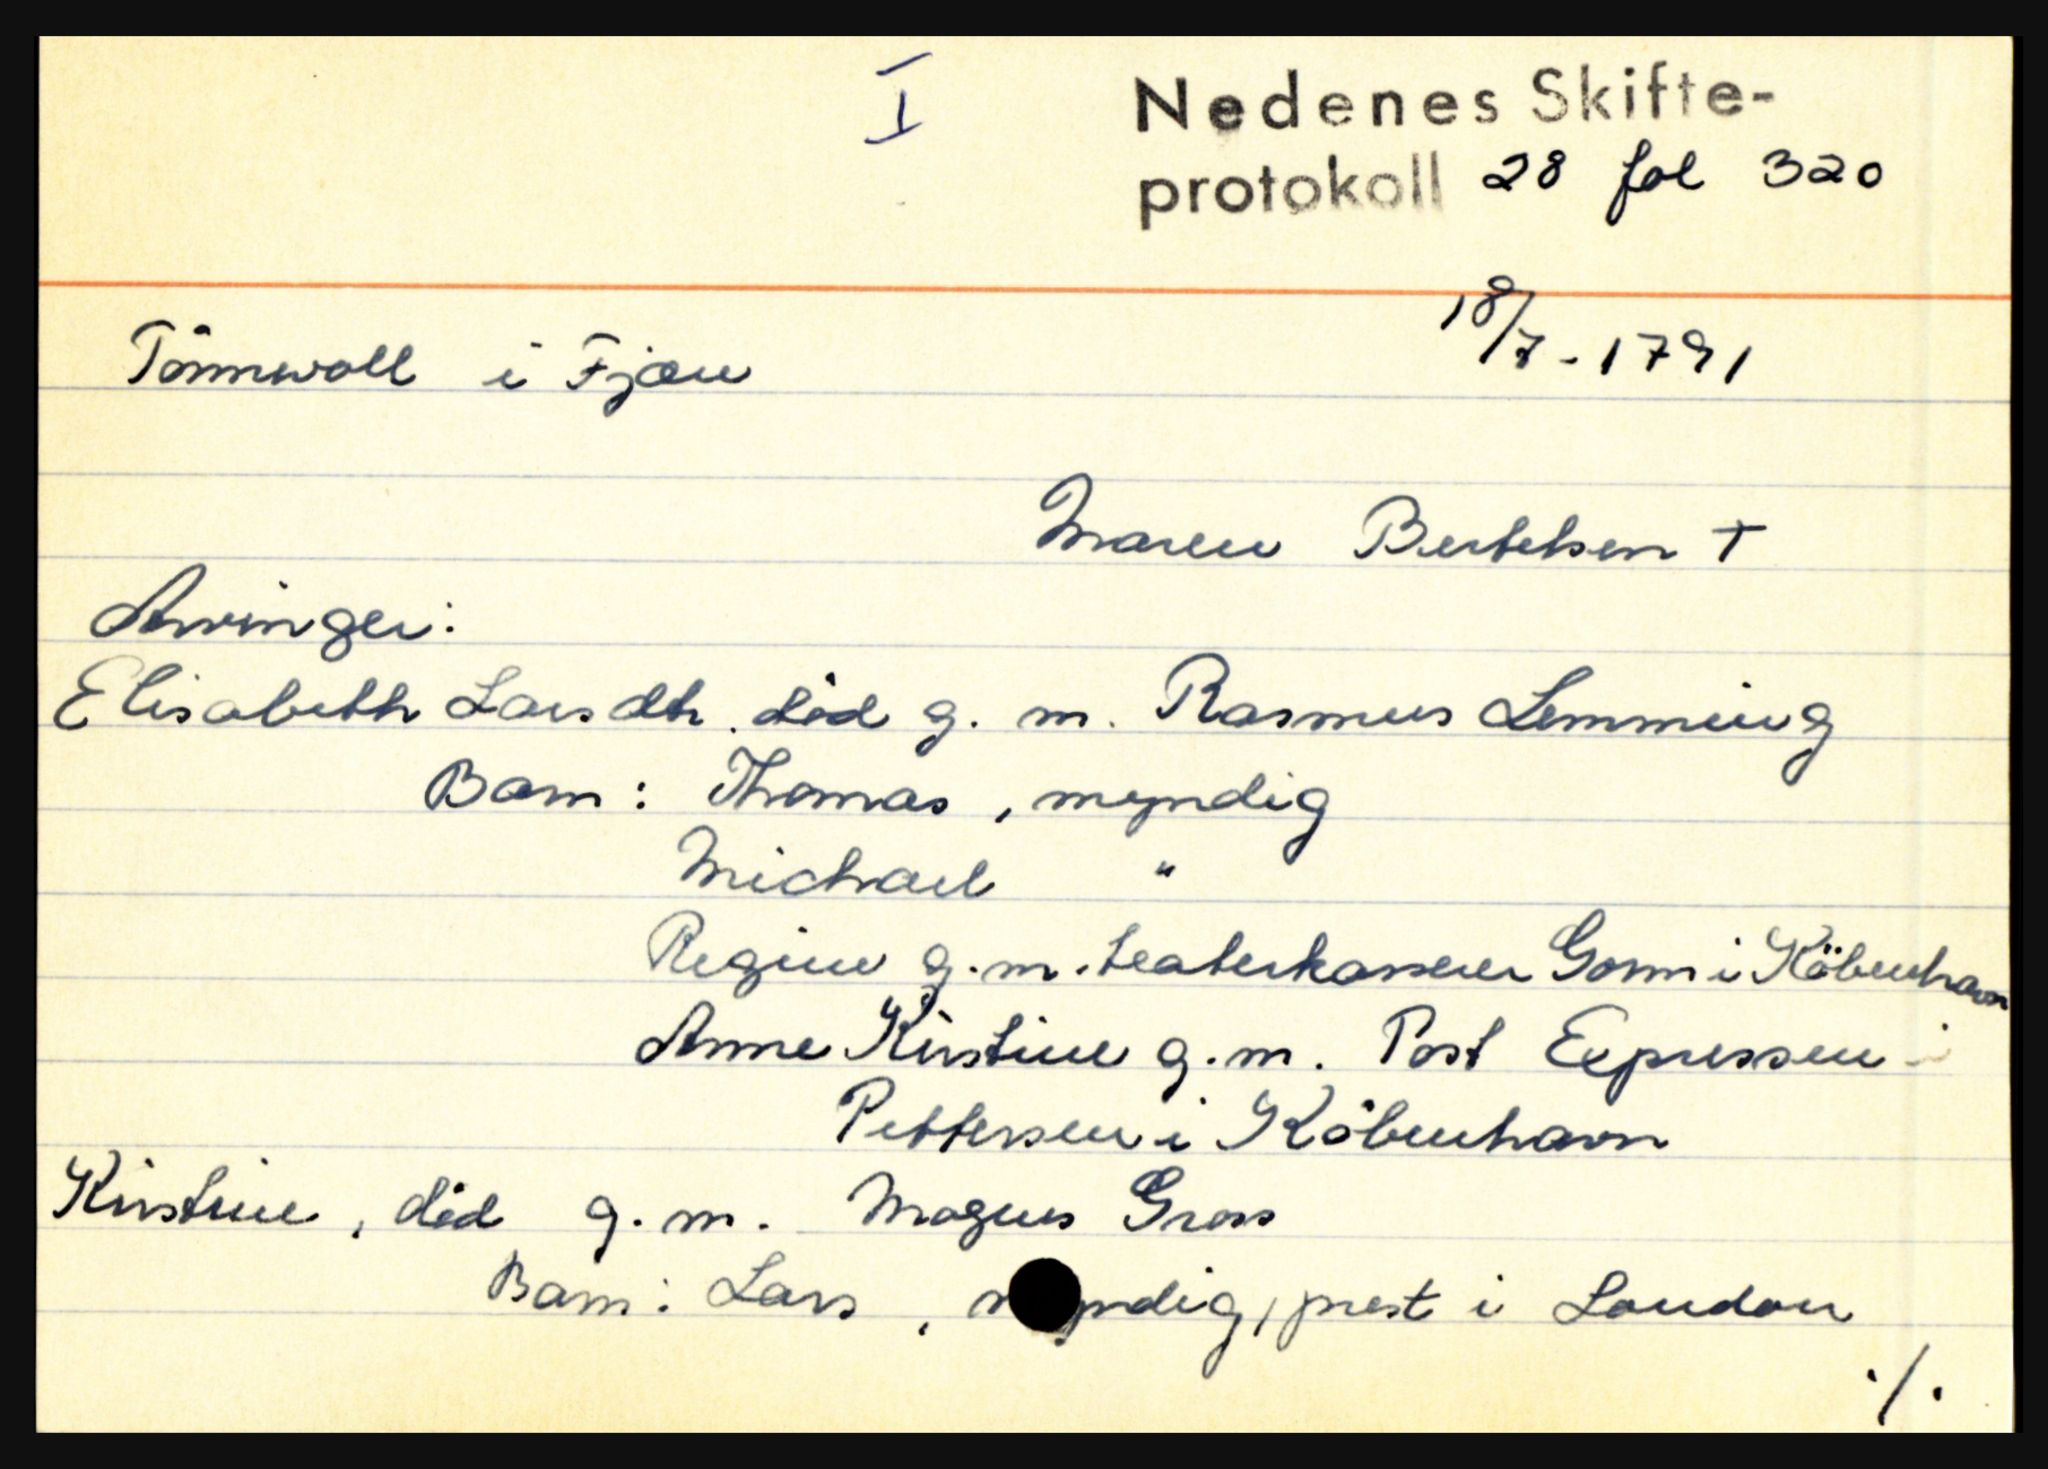 I
Nedenes Skifte-
protokoll 28 fol 320
18/7-1791
Tönnwoll i Fjæu
Maren Bertelsen †
Arvinger:
Elisabeth Larsdtr. död g. m. Rasmus Lemming
Barn: Thomas, myndig
Michael "
Regine g.m. teaterkasserer Gorm i Köbenhavn
Anne Kirstine g.m. Post Expressen i
Pettersen i Köbenhavn
Kirstine, död g. m. Magnus Gross
Barn: Lars, myndig, prest i London
./.